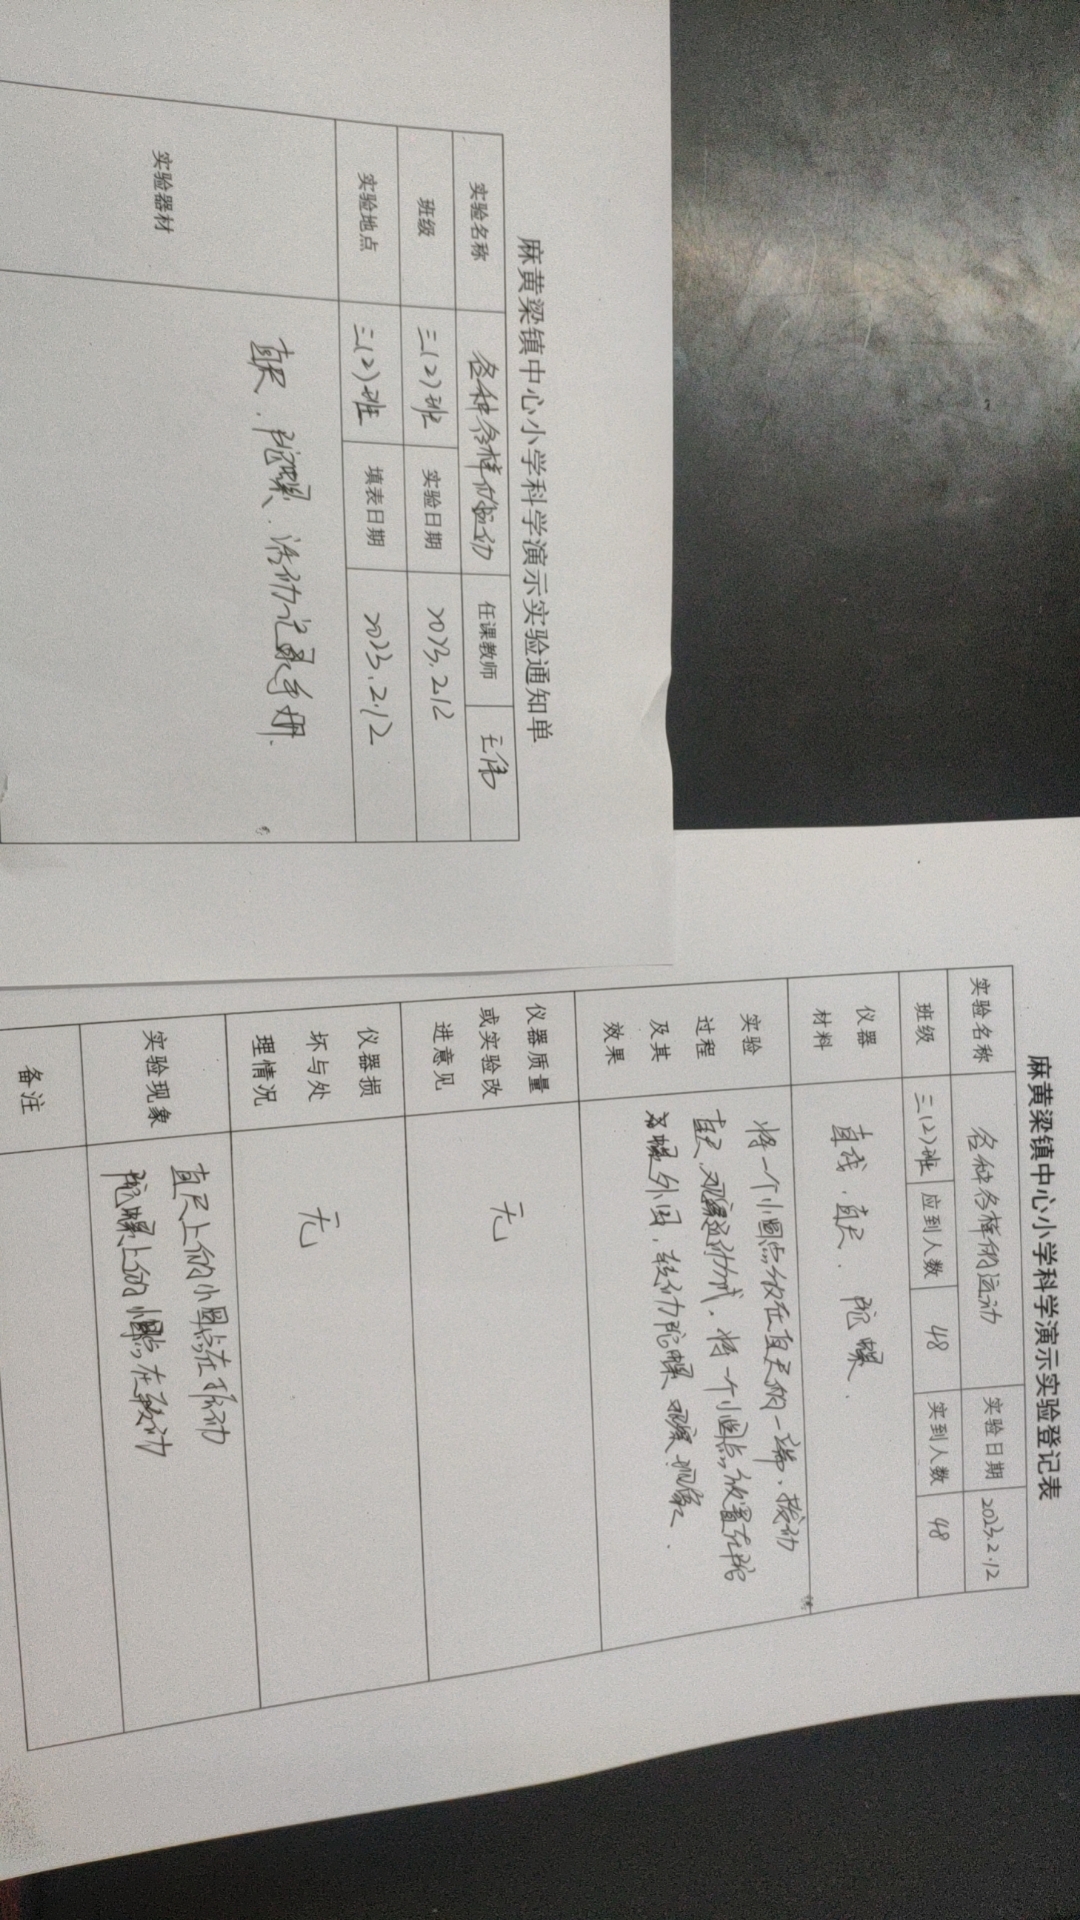 麻黄梁镇中心小学科学演示实验通知单
实验名称 各种各样的运动 任课教师 王伟
班级 三(2)班 实验日期 2023.2.12
实验地点 三(2)班 填表日期 2023.2.12
实验器材
直尺.陀螺.活动记录手册.
麻黄梁镇中心小学科学演示实验登记表
实验名称 各种各样的运动 实验日期 2023.2.12
班级 三(2)班 应到人数 48 实到人数 48
仪器
材料
直尺. 陀螺.
实验
过程
及其
效果
将一个小圆点放在直尺的一端,拨动
直尺,观察运动方式,将一个小圆点放置在陀
螺外围,转动陀螺 观察现象.
仪器质量
或实验改
进意见
无
仪器损
坏与处
理情况
无
实验现象
直尺上的小圆点在振动
陀螺上的小圆点在转动
备注